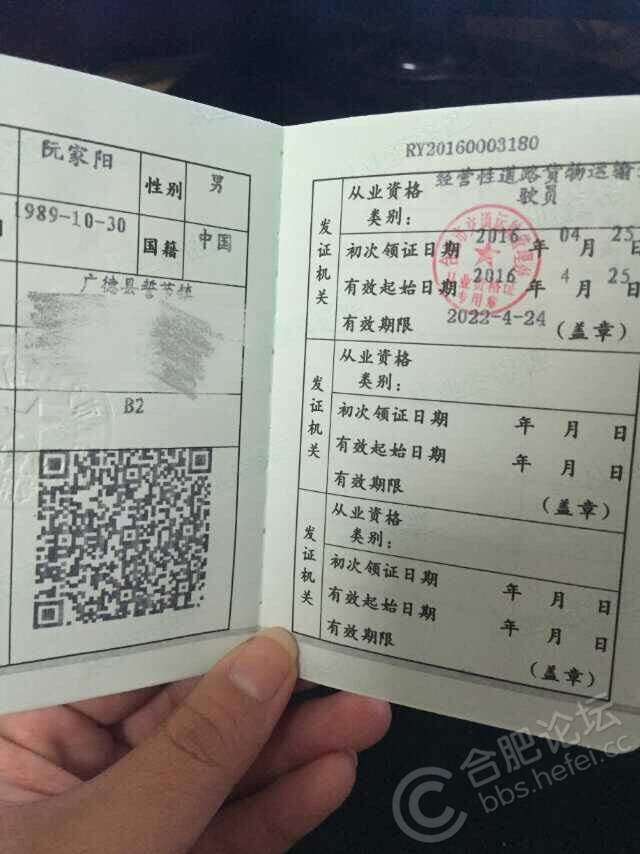 阮家阳
性别
男
1989-10-30
国籍
中国
广德县誓节镇
B2
RY20160003180
发证机关
从业资格类别：
经营性道路货物运输
驶员
初次领证日期 2016 年 04 月 25
有效起始日期 2016 年 4 月 25
有效期限 2022-4-24
（盖章）
从业资格证
专用章
发证机关
从业资格
类别：
初次领证日期 年 月 日
有效起始日期 年 月 日
有效期限
（盖章）
发证机关
从业资格
类别：
初次领证日期 年 月 日
有效起始日期 年 月 日
有效期限
（盖章）
合肥论坛
bbs.hefei.cc